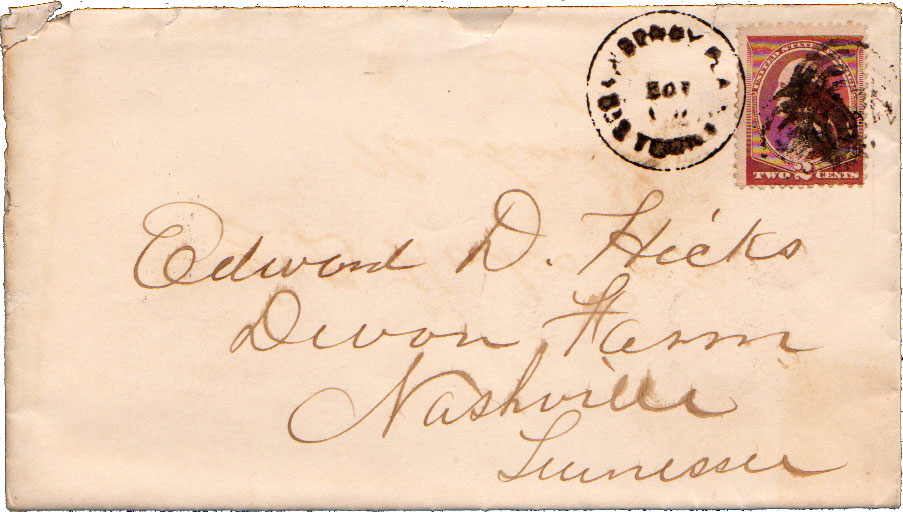 UNITED STATES POSTAGE
TWO 2 CENTS
Edward D. Hicks
Devon Farm
Nashville
Tennessee